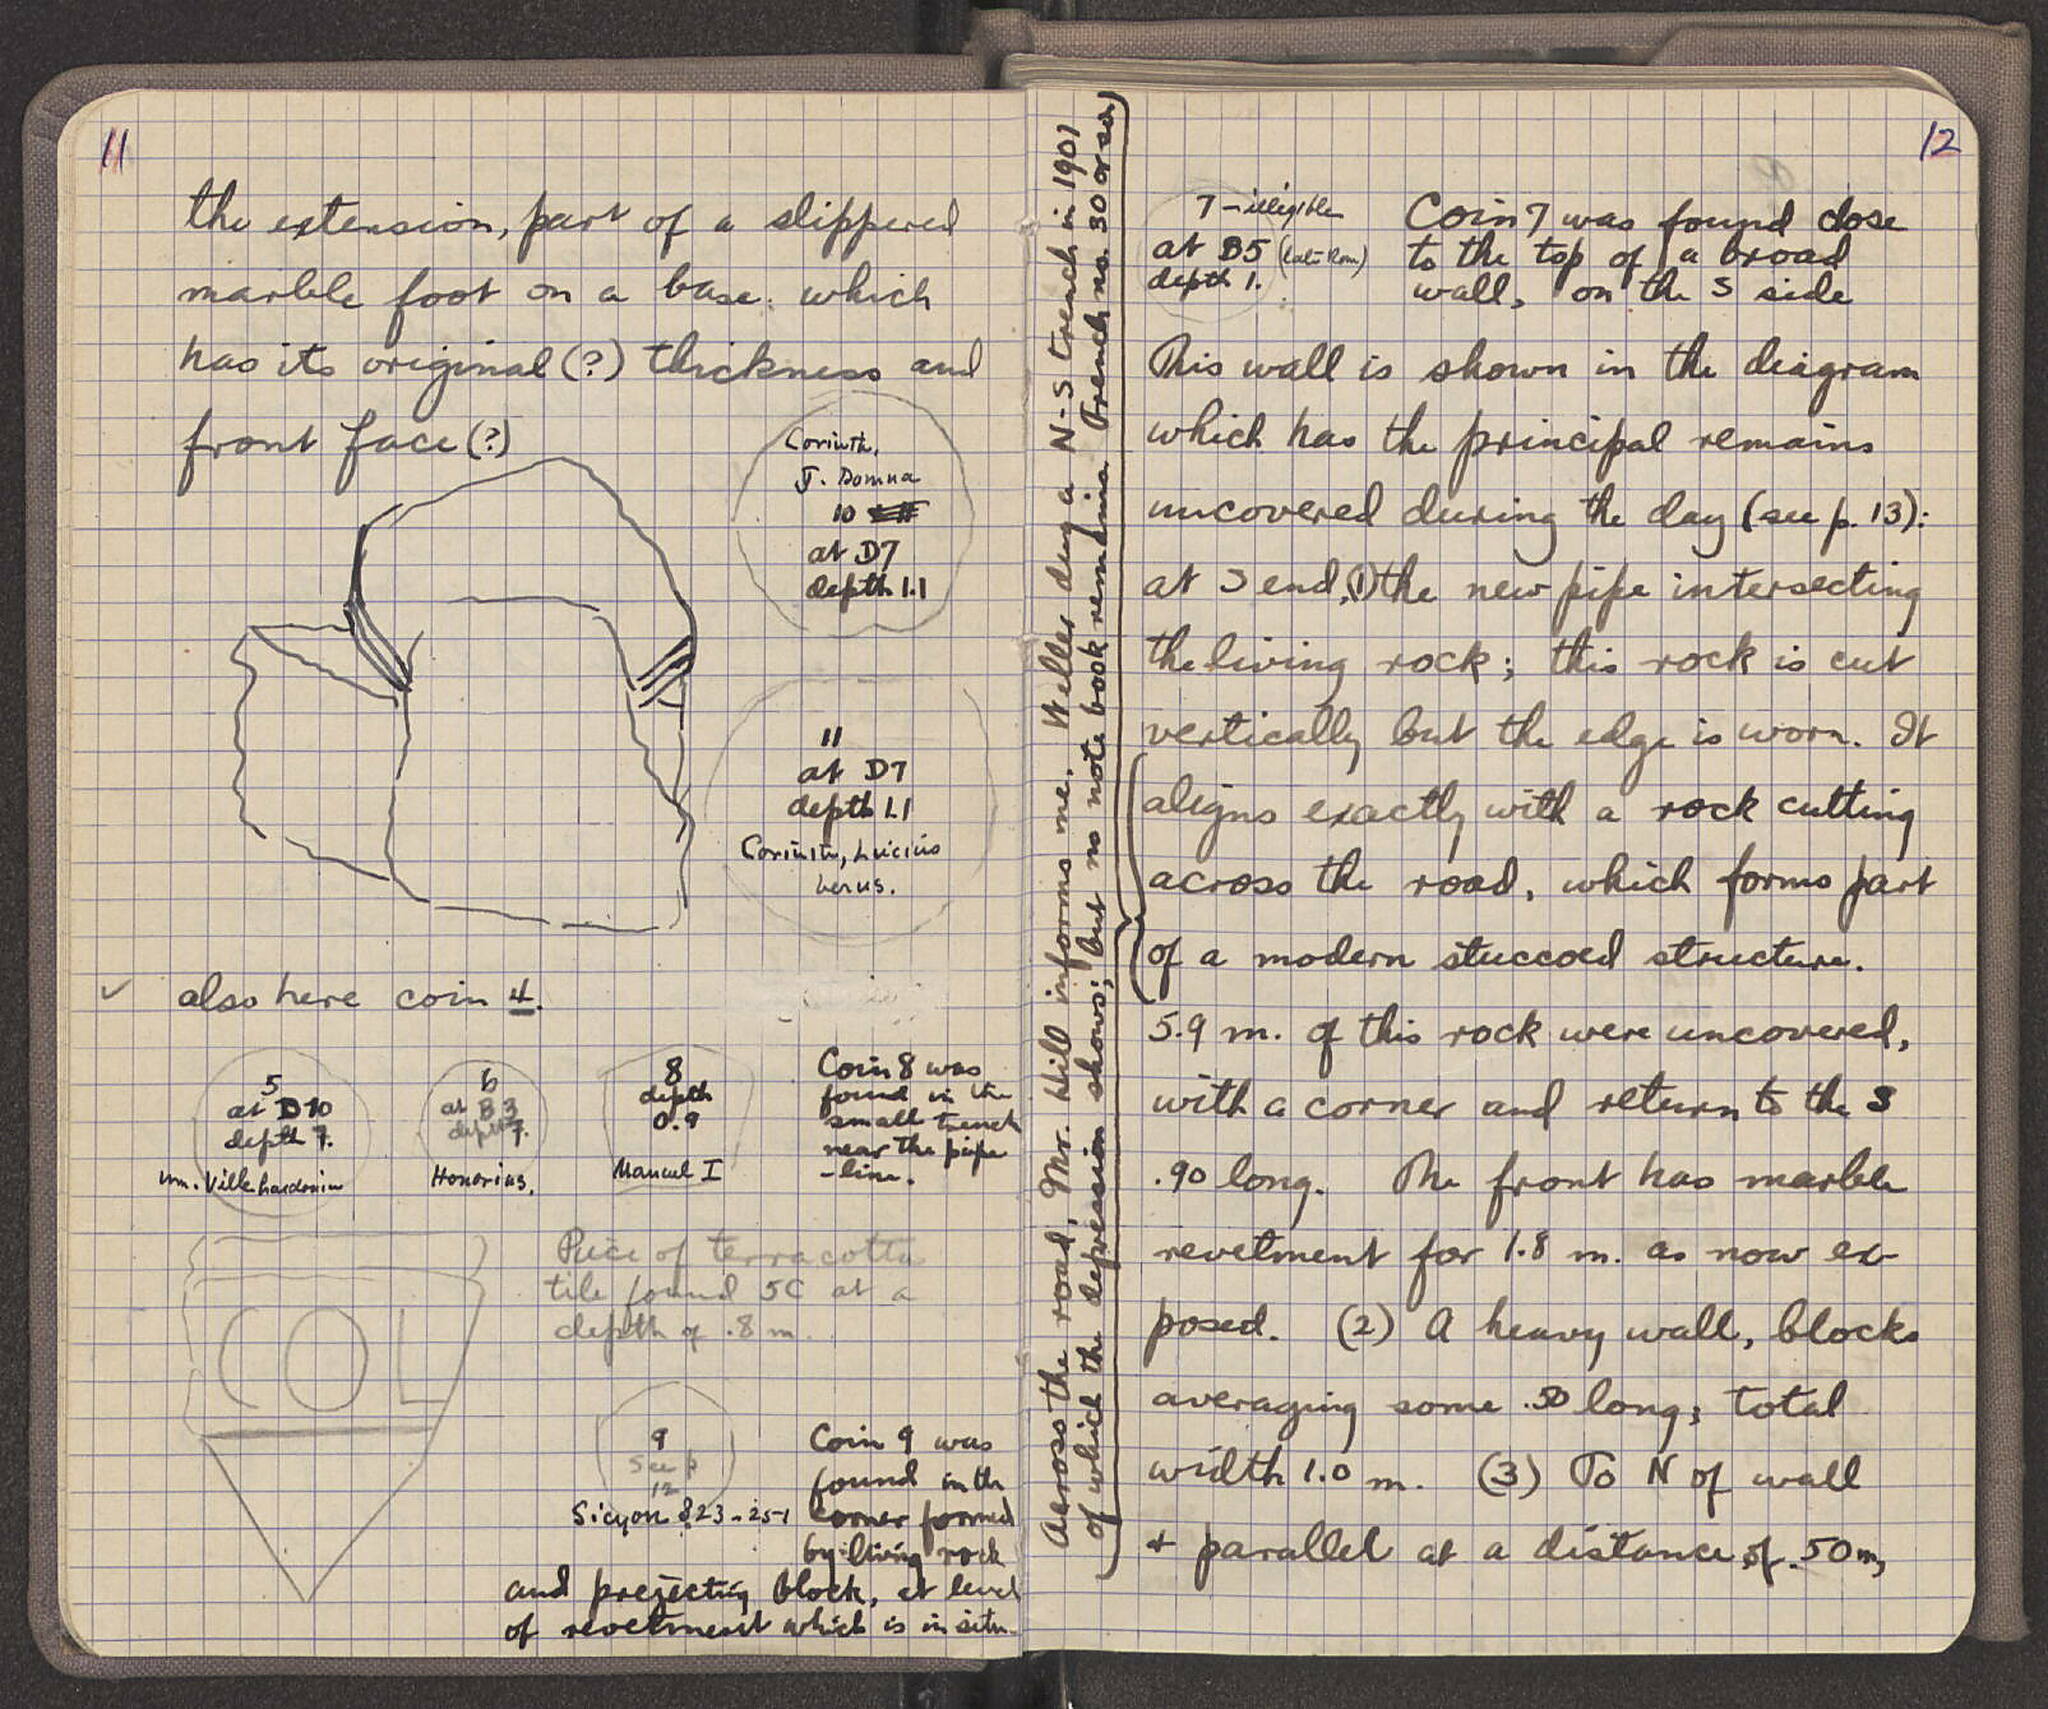 11
the extension, part of a slippered
marble foot on a base: which
has its original (?) thickness and
front face (?)
Corinth,
J. Domna
10
at D7
depth 1.1
11
at D7
depth 1.1
Corinth, Lucius
Verus.
✓ also here coin 4.
5
at D10
depth 7.
Wm. Villehardouin
6
at B3
depth 7.
Honorius.
8
depth
0.9
Manuel I
Coin 8 was
found in the
small trench
near the pipe
-line.
Piece of terracotta
tile found 5C at a
depth of .8 m.
COL
9
See p
12
Sicyon 323-251
Coin 9 was
found in the
corner formed
by living rock
and projecting block, at level
of revetment which is in situ.
Across the road, Mr. Hill informs me, Weller dug a N-S trench in 1901
of which the depression shows; but no note book remains. Trench no. 30 or so.
12
7 - illegible
at B5 (late Rom)
depth 1.
Coin 7 was found close
to the top of a broad
wall, on the S side
This wall is shown in the diagram
which has the principal remains
uncovered during the day (see p. 13):
at S end, (1) the new pipe intersecting
the living rock; this rock is cut
vertically but the edge is worn. It
aligns exactly with a rock cutting
across the road, which forms part
of a modern stuccoed structure.
5.9 m. of this rock were uncovered,
with a corner and return to the S
.90 long. The front has marble
revetment for 1.8 m. as now ex-
posed. (2) A heavy wall, blocks
averaging some .50 long; total
width 1.0 m. (3) To N of wall
+ parallel at a distance of .50 m,